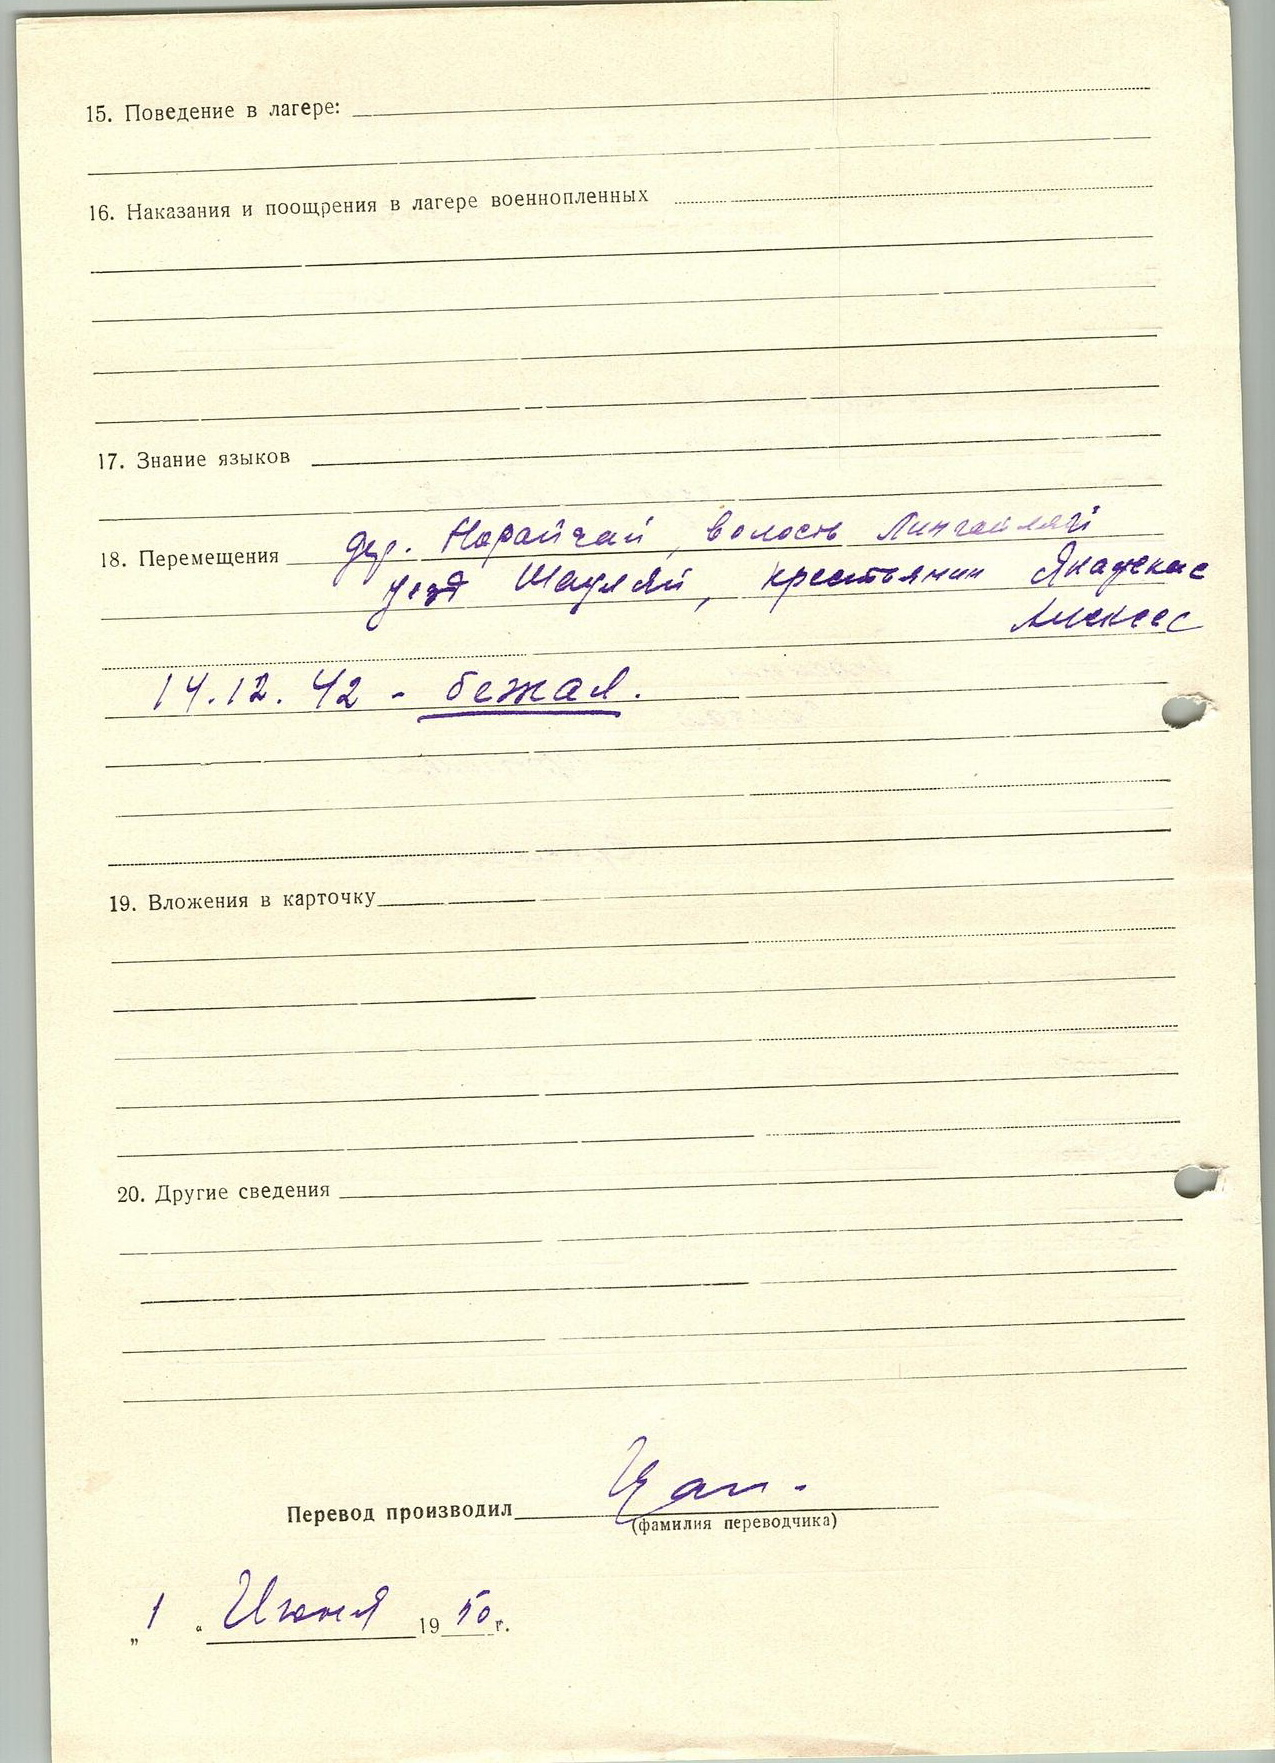 15. Поведение в лагере:
16. Наказания и поощрения в лагере военнопленных
17. Знание языков
18. Перемещения дер. Норайчай, волость Лингайляй
уезд Шауляй, крестьянин
Алексас
14.12.42 - бежал.
19. Вложения в карточку
20. Другие сведения
Перевод производил
(фамилия переводчика)
„1“ Июня 1950 г.